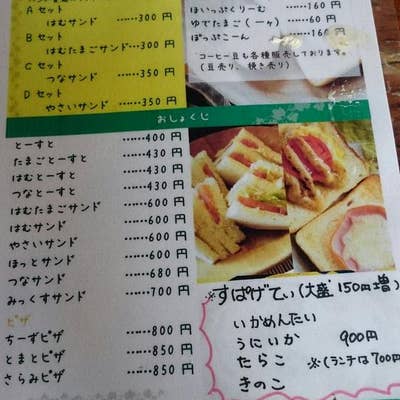 Aセット
はむサンド ……300円
Bセット
はむたまごサンド ……300円
Cセット
つなサンド ……350円
Dセット
やさいサンド ……350円
ほいっぷくりーむ ……160円
ゆでたまご(一ヶ) ……60円
ぽっぷこーん ……160円
コーヒー豆も各種販売しております。
(豆売り、挽き売り)
おしょくじ
とーすと ……400円
たまごとーすと ……430円
はむとーすと ……430円
つなとーすと ……430円
はむたまごサンド ……600円
はむサンド ……600円
やさいサンド ……600円
ほっとサンド ……600円
つなサンド ……680円
みっくすサンド ……700円
ピザ
ちーずピザ ……800円
とまとピザ ……850円
さらみピザ ……850円
※すぱげてぃ(大盛150円増)
いかめんたい
うにいか
たらこ
きのこ
900円
※(ランチは700円